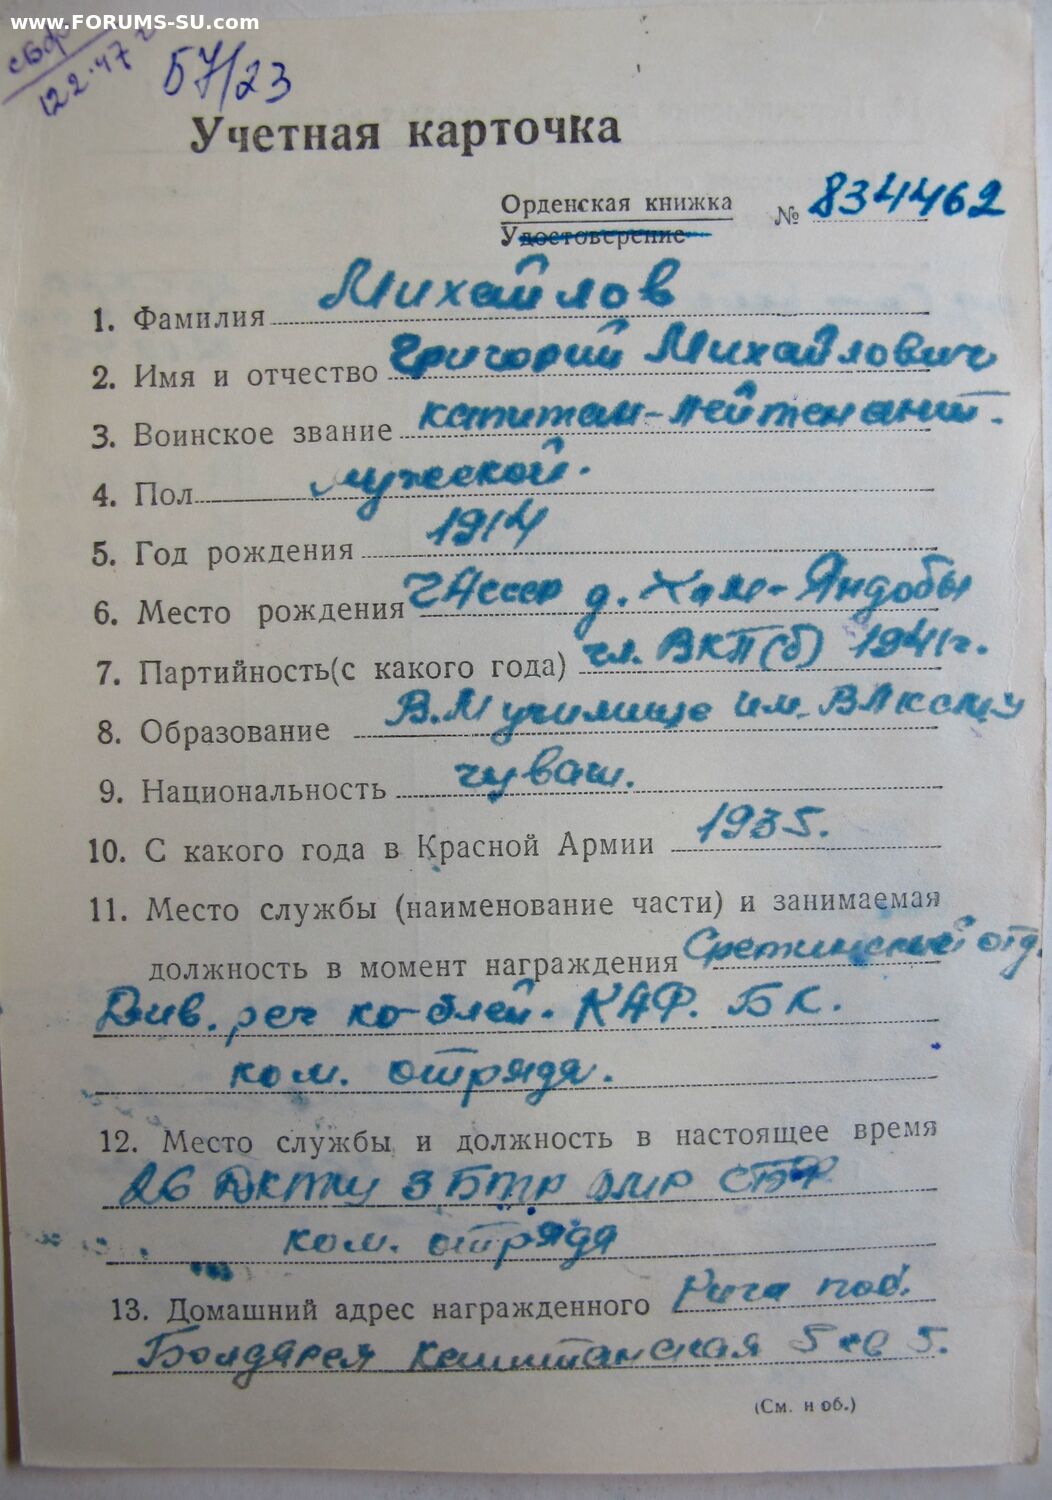 www.FORUMS-SU.com
сБФ
12 2.47 г
57/23
Учетная карточка
Орденская книжка № 834462
Удостоверение
1. Фамилия Михайлов
2. Имя и отчество Григорий Михайлович
3. Воинское звание капитан-лейтенант.
4. Пол мужской.
5. Год рождения 1914
6. Место рождения ЧАССР д. Хом-Яндобы
7. Партийность(с какого года) чл. ВКП(б) 1941г.
8. Образование В.М училище им.
9. Национальность чуваш.
10. С какого года в Красной Армии 1935.
11. Место службы (наименование части) и занимаемая
должность в момент награждения Сретинский отд.
Див. реч ко-блей. КАФ. БК.
ком. отряда.
12. Место службы и должность в настоящее время
26 3 БТР СБФ
ком. отряда
13. Домашний адрес награжденного Рига
Болдерея Каштанская 5 кв 5.
(См. н об.)